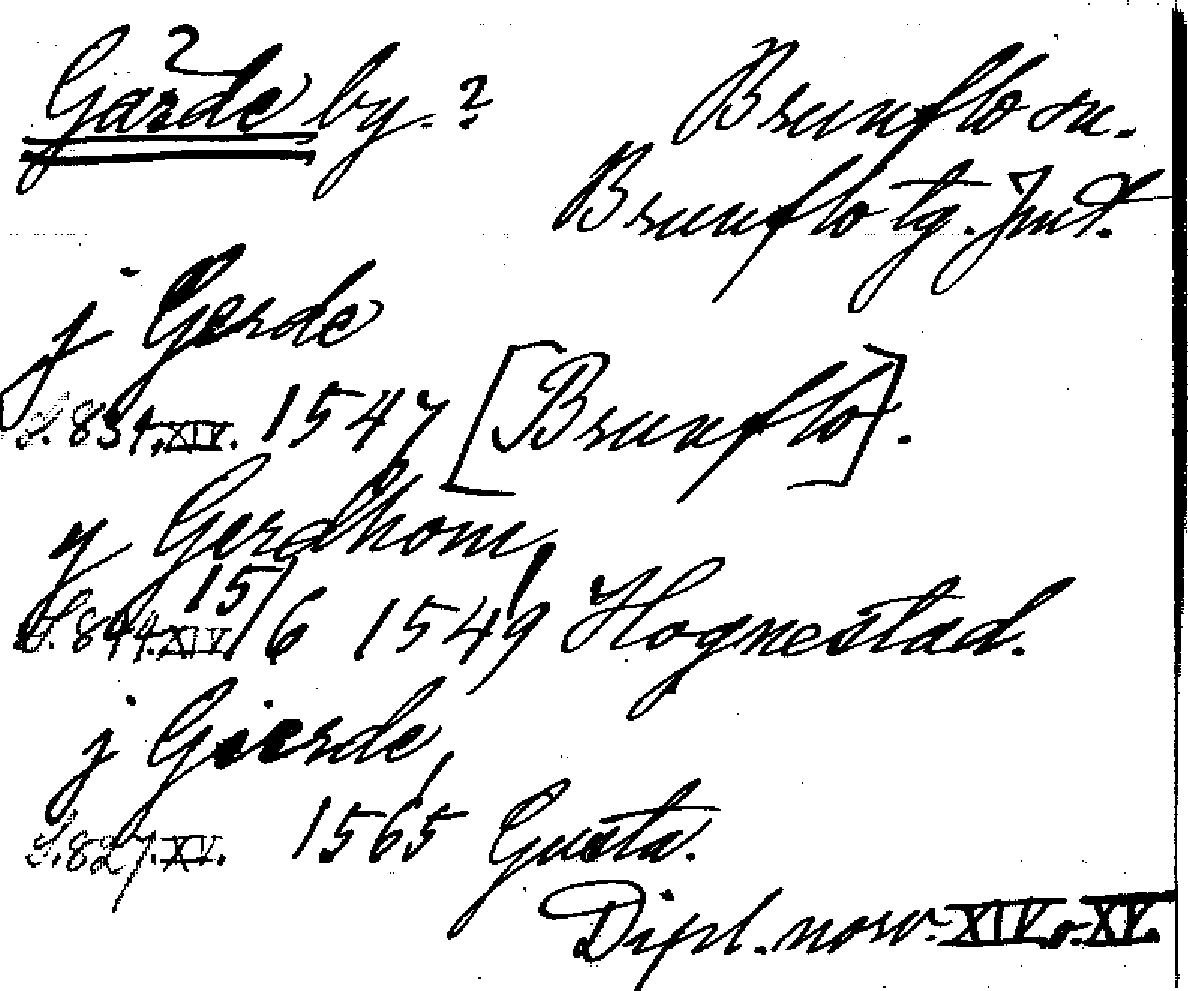 ?
Garde by.? Brunflo sn.
Brunflo tg. Jmt.
j Gerde
S. 834. XIV. 1547 [Brunflo].
y Gerdhom,
S. 844. XIV. 15/6 1549 Hognestad.
j Gierde,
S. 827. XV. 1565 Gusta.
Dipl. norv. XIV o. XV.